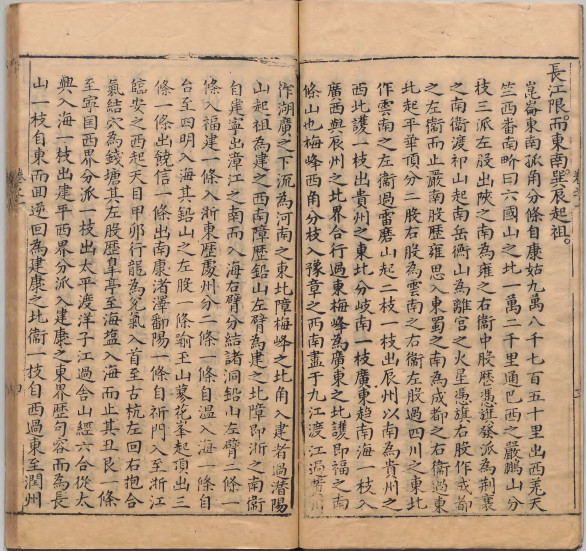 長江限。而東南巽辰起祖。
崑崙東南孤角分條自康姑九萬八千七百五十里出西羌天
竺西番南畍曰六國山之北一萬二千里通巴西之嚴鵬山分
枝三派左股出陜之南為雍之右衞中股歷馮進發派為荊襄
之南衞渡祁山起南岳衡山為離宮之火星馮旗右股作成都
之左衞而止嚴南股歷雍思入東蜀之南為成都之右衞過東
北起平華頂分二股右股為雲南之右衞左股過四川之東北
作雲南之左衞過雷磨山起二枝一枝出辰州以南為貴州之
西北護一枝出貴州之東北分岐南一枝廣東趋南海一枝入
廣西與辰州之北界合行過東梅峰為廣東之北護即福之南
條山也梅峰西角分枝入豫章之西南盡于九江渡江過
作湖廣之下沉為河南之東北障梅峰之北角入建者過潛陽
山起祖為建之西南障歷鉛山左臂為建之北障即浙之南衞
自建寧出漳江之南而入海右臂分結諸洞鉛山左臂二條一
條入福建一條入浙東歷處州分二條一條自溫入海一條自
台至四明入海其鉛山之左股一條踰玉山蓼花峯起頂出三
條一條出饒信一條出南康渚澤鄱陽一條自祈門入至浙江
臨安之西起天目甲卯行龍為兌氣入首至古杭左回右抱合
氣結穴為錢塘其左股歷臯亭至海盬入海而止其丑艮一條
至寧国西界分派一枝出太平渡洋子江過含山經六合從太
興入海一枝出建平西界分派入建康之東界歷句容而為長
山一枝自東而回逆回為建康之北衞一枝自西過東至潤州